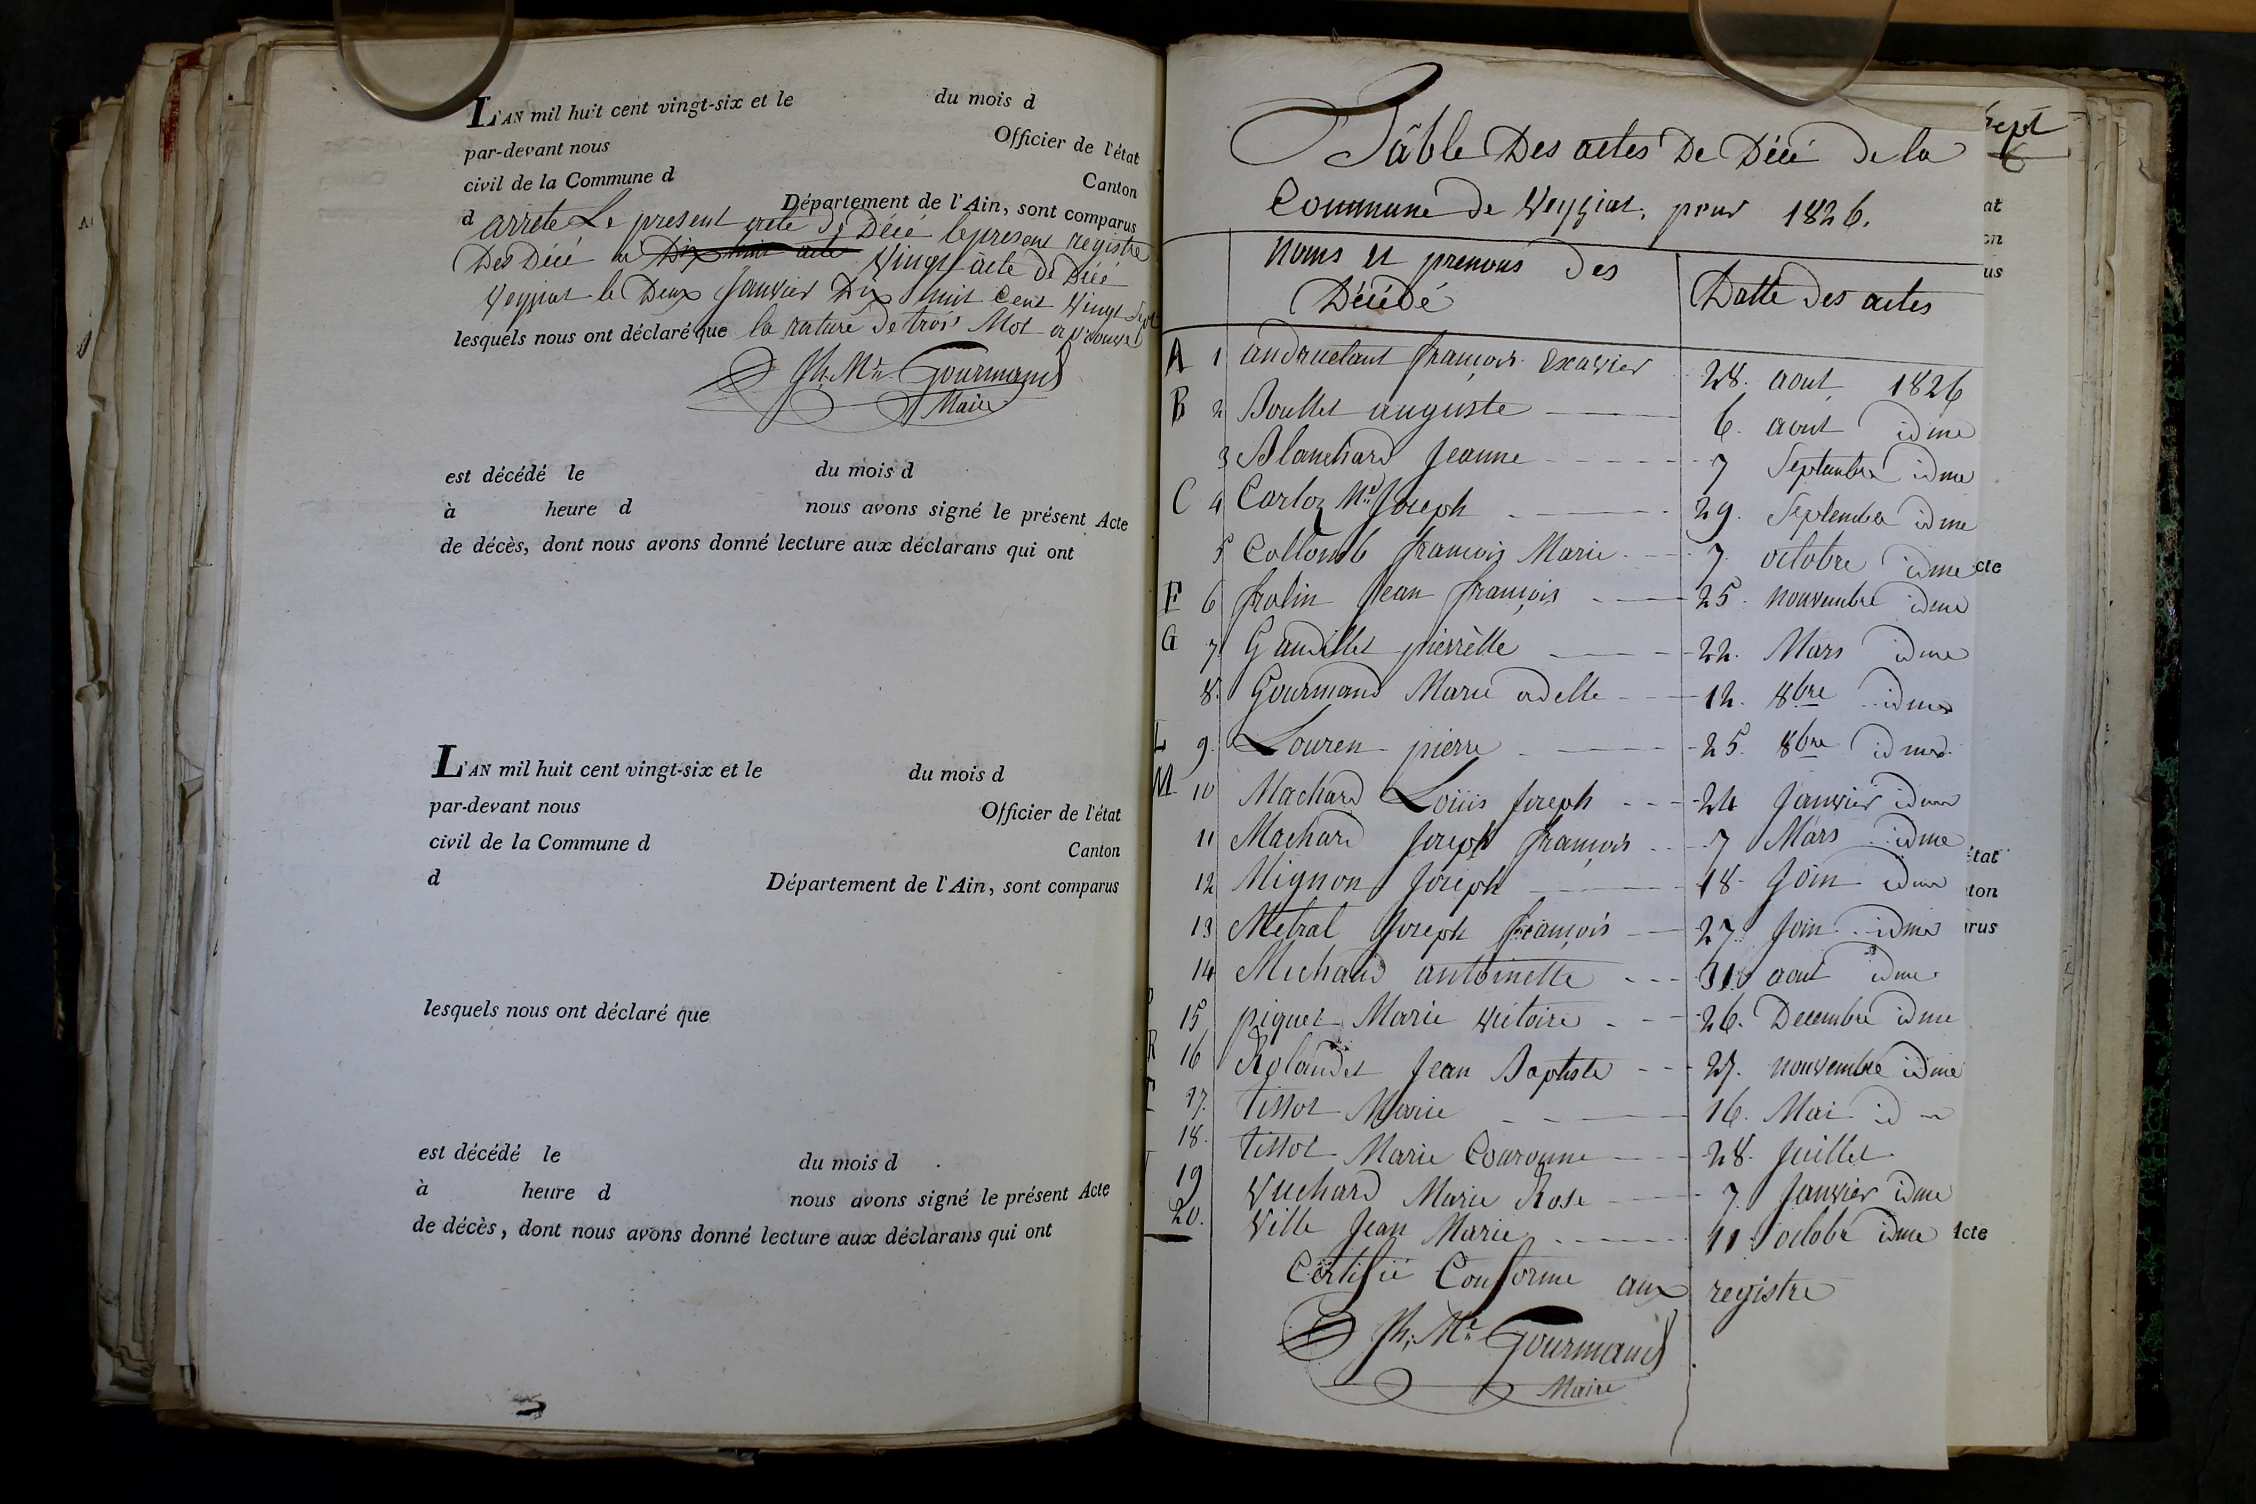 L'AN mil huit cent vingt-six et le du mois d
par-devant nous Officier de l'état
civil de la Commune d Canton
d Département de l'Ain, sont comparus
arrete Le present acte de Décé le present registre
Des Décé a Dix huit acte Vingt acte de Décé
Veyziat le Deux Janvier Dix huit Cent Vingt Sept
lesquels nous ont déclaré que la rature de trois Mot approuvé
Jh. Mie Gourmand
Maire
est décédé le du mois d
à heure d nous avons signé le présent Acte
de décès, dont nous avons donné lecture aux déclarans qui ont
L'AN mil huit cent vingt-six et le du mois d
par-devant nous Officier de l'état
civil de la Commune d Canton
d Département de l'Ain, sont comparus
lesquels nous ont déclaré que
est décédé le du mois d
à heure d nous avons signé le présent Acte
de décès, dont nous avons donné lecture aux déclarans qui ont
Tâble Des actes De Décé de la
Commune de Veyziat, pour 1826.
Noms et prenoms des
Décédé
Datte des actes
A 1 andruetant françois Exavier 28. aout 1826
B 2 Boullet auguste 6. aout idme
3 Blanchard Jeanne 7 Septembre idme
C 4 Carloz Mie Joseph 29. Septembre idme
5 Collomb francois Marie 7. octobre idme
F 6 frolin Jean françois 25. nouvembre idme
G 7 Gaudillet pierrètte 22. Mars idme
8. Gourmand Marie adelle 12. 8bre idme
L 9. Louren pierre 25. 8bre idme
M 10 Machard Loüis Joseph 24 Janvier idme
11 Machard Joseph françois 7 Mars idme
12 Mignon Joseph 18 Join idme
13 Metral Joseph françois 27. Join idme
14 Michaud antoinette 31 aout idme
P 15 piquet Marie victoire 26. Decembre idme
R 16 Rolandet Jean Baptiste 27. nouvembre idme
T 17. tissot Marie 16. Mai id
18. tissot Marie Couronne 28. Juillet
19 Vuchard Marie Rose 7. Janvier idme
20. Ville Jean Marie 11 octobre idme
Certifié Conforme aux registre
Jh. Mie Gourmand
Maire
Sept
at
on
us
cte
état
ton
rus
Acte